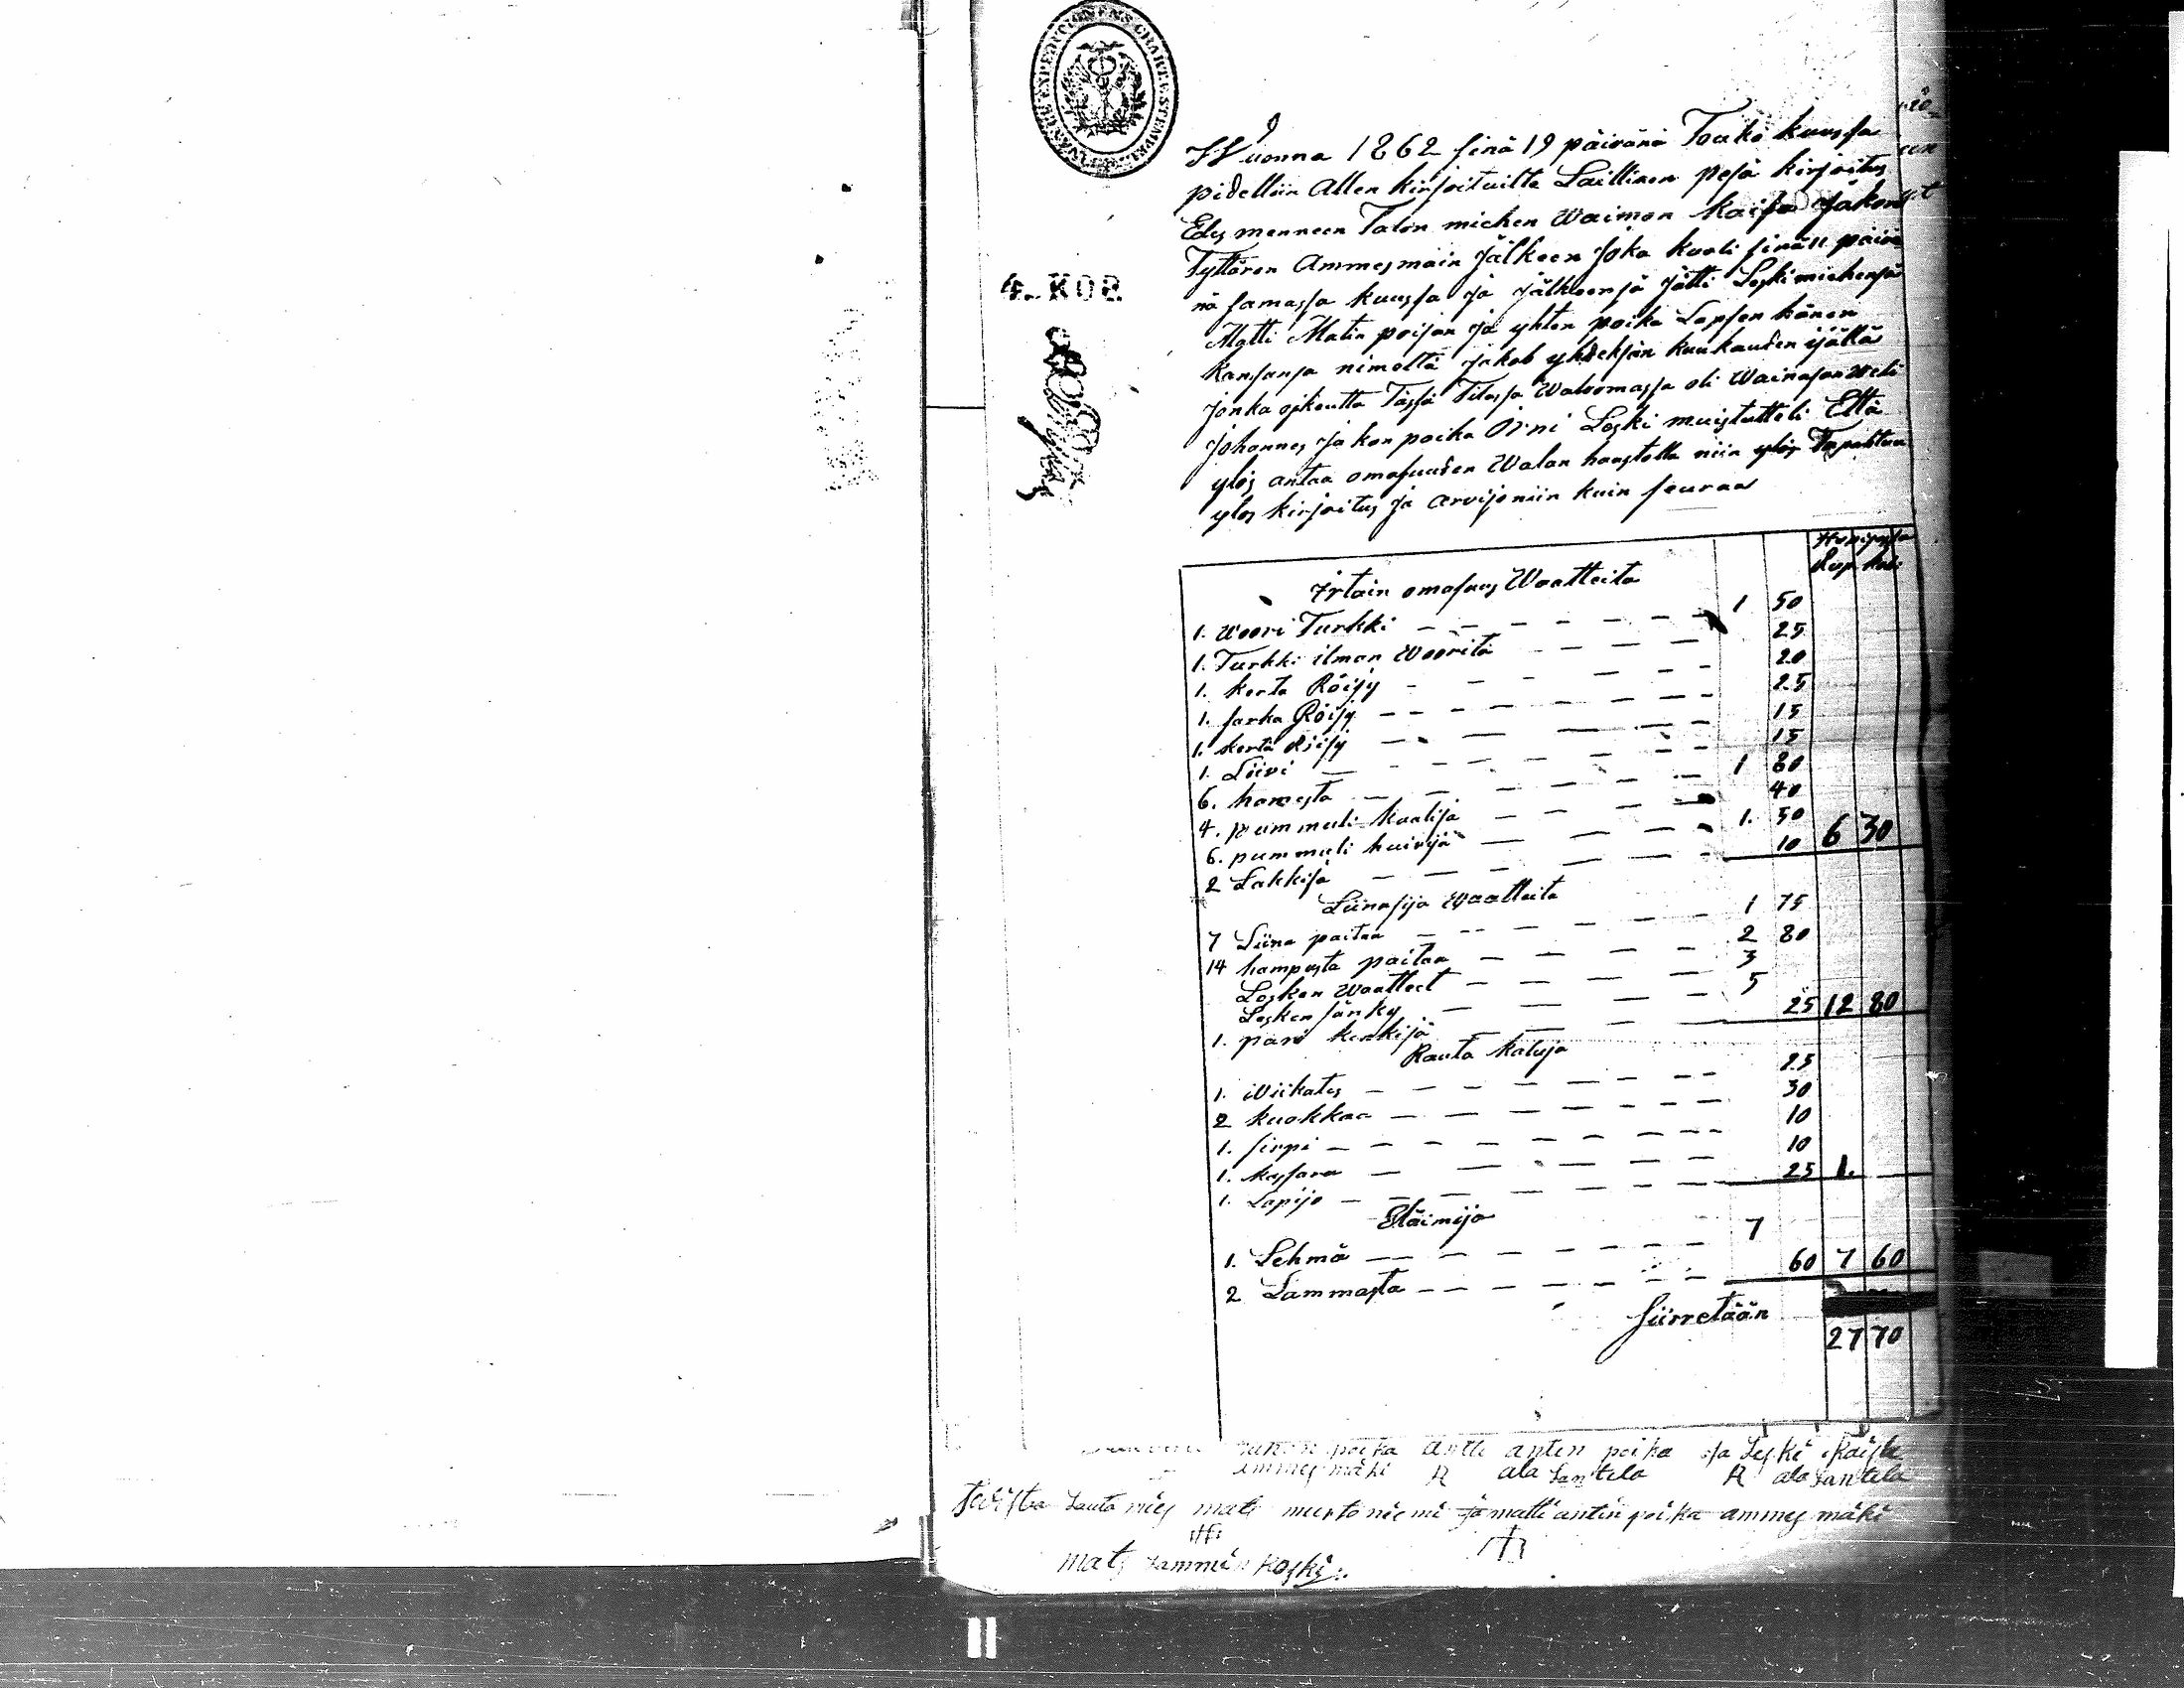 Wuonna 1862 sinä 19 päivänä Touko kuussa
pidettiin Allen kirjoituilta Laillinen pesä kirjoitus
Edes menneen Talon miehen Waimon Kaisa Jakobs
Tyttären Ammesmäin jälkeen joka kuoli sinä 11 päivä
nä samassa kuussa ja jälkeensä jätti Leski miehensä
Matti Matin poijan ja yhten poika Lapsen hänen
4. KOP.
kansansa nimeltä Jakob yhdeksän kuukauden ijällä
jonka oikeutta Tässä Tilassa Walvomassa oli Wainajan Weli
Johannes Jakon poika Orni Leski muistutteli Että
ylös antaa omasuuden Walan haastolla niin ylös Tapahtuu
ylos kirjoitus ja arvijo niin kuin seuraa
Hopiassa
Rup. Kop.
Irtain omasuus Waatteita
1. Woori Turkki 1 50
1. Turkki ilman Wooritä 25
1. kerta Röijy 20
1. sarka Röijy 25
1. kerta Röijy 15
1. Liivi 15
6. hamesta 1 80
4. pummuli kaalija 40
6. pummuli huivija 1. 50
2 Lakkija 10 6 30
Liinasija Waatteita
7 Liina paitaa 1 75
14 hampusta paitaa 2 80
Lesken Waatteet 3
Lesken sänky 5
1. pari kenkijä 25 12 80
Rauta kaluja
1. Wiikates 25
2 kuokkaa 30
1. sirpi 10
1. kassara 10
1. Lapijo 25 1.
Eläimijä
1. Lehmä 7
2 Lammasta 60 7 60
Siirretään
27 70
poika antti antin poika ja Leski Kaisa
ammes mäki ala Santela ala Santela
Lauta mies mati murto niemi ja matti antin poika ammes mäki
mats Lammin koski